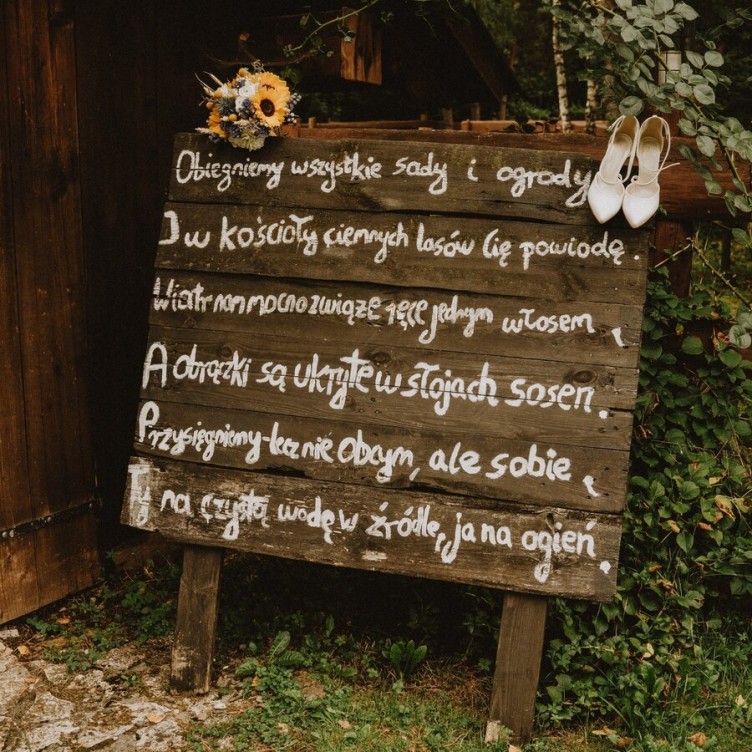 Obiegniemy wszystkie sady i ogrody
I w kościoły ciemnych lasów Cię powiodę.
Wiatr nam mocno zwiąże ręce jednym włosem,
A obrączki są ukryte w słojach sosen.
Przysięgniemy - lecz nie Obcym, ale sobie,
Ty na czystą wodę w źródle, ja na ogień.